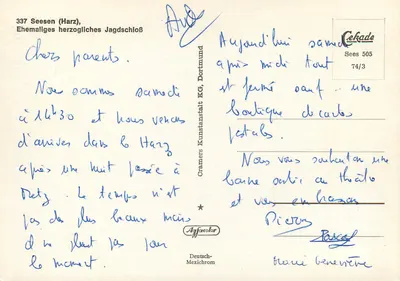 337 Seesen (Harz),
Ehemaliges herzogliches Jagdschloß
Chers parents.
Nous sommes samedi
à 14h30 et nous venons
d'arriver dans le Harz
après une nuit passée à
Metz. Le temps n'est
pas des plus beaux mais
il ne pleut pas pour
le moment.
Cramers Kunstanstalt KG, Dortmund
Deutsch-
Mexichrom
Cekade
Sees 505
74/3
Aujourd'hui samedi
après midi tout
est fermé sauf une
boutique de cartes
postales.
Nous vous souhaitons une
bonne soirée au théâtre
et vous embrassons
Pierre
Pascal
Marie Geneviève